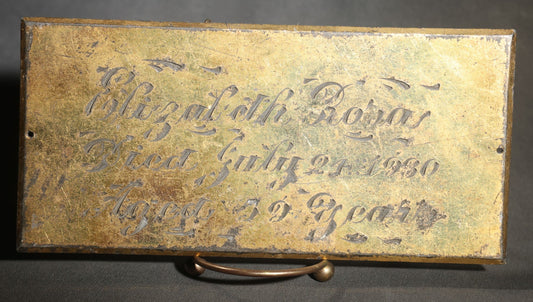 Elizabeth Rozas
Died July 21 1880
Aged 59 Years